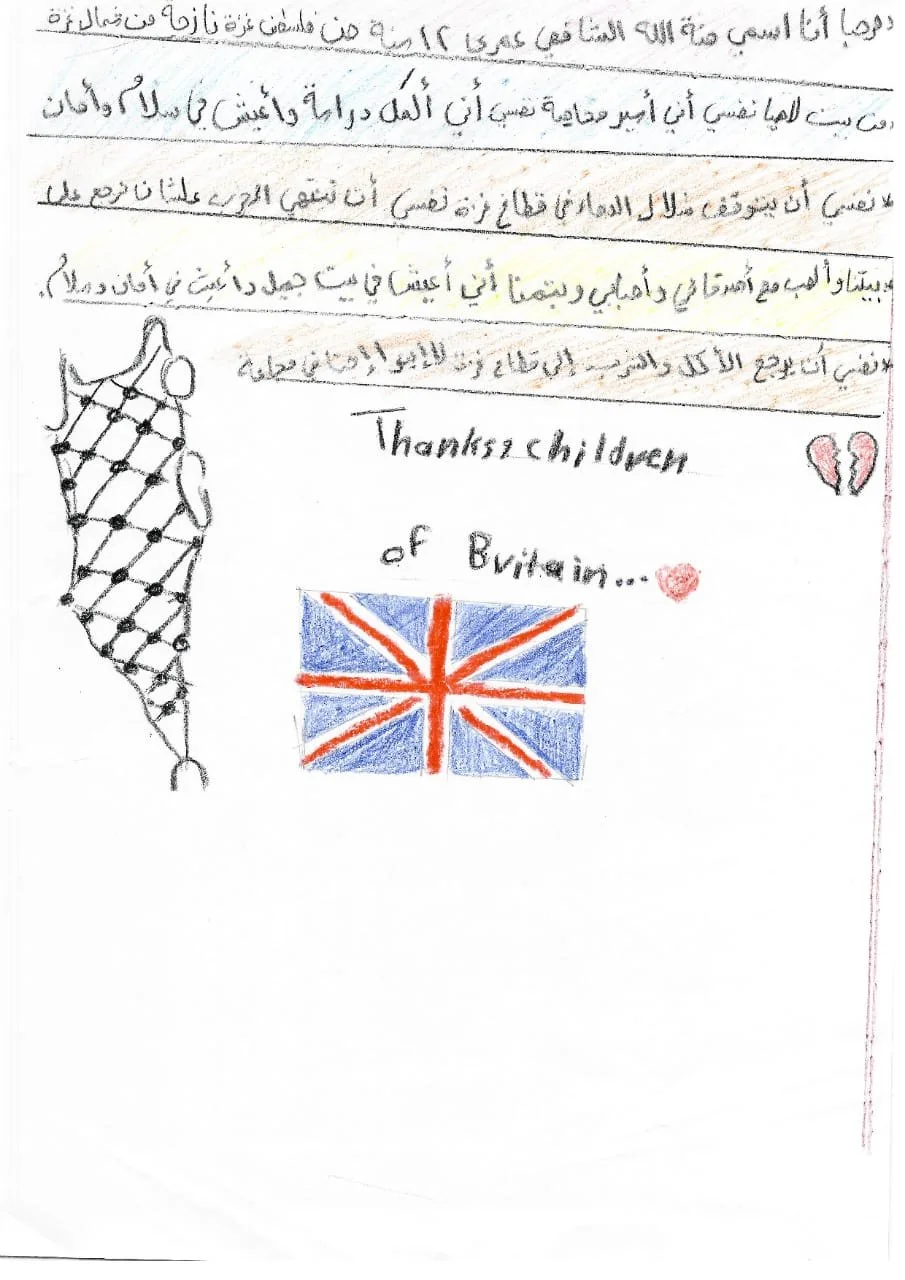 مرحبا أنا اسمي منة الله الشافعي عمري ١٢ سنة من فلسطين غزة نازحة من شمال غزة
من بيت لاهيا نفسي أني أصير محامية نفسي أني أكمل دراسة وأعيش في سلام وأمان
* نفسي أن يتوقف شلال الدماء في قطاع غزة نفسي أن تنتهي الحرب علشان نرجع على
* بيتنا وألعب مع أصدقائي وأحبابي وبتمنا أني أعيش في بيت جميل وأعيش في أمان وسلام.
* نفسي أن يرجع الأكل والشرب إلى قطاع غزة إحنا في مجاعة
Thanks, children
of Britain...